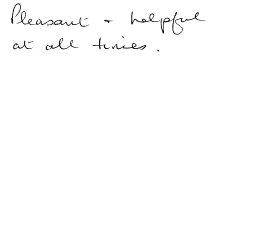 Pleasant + helpful
at all times.